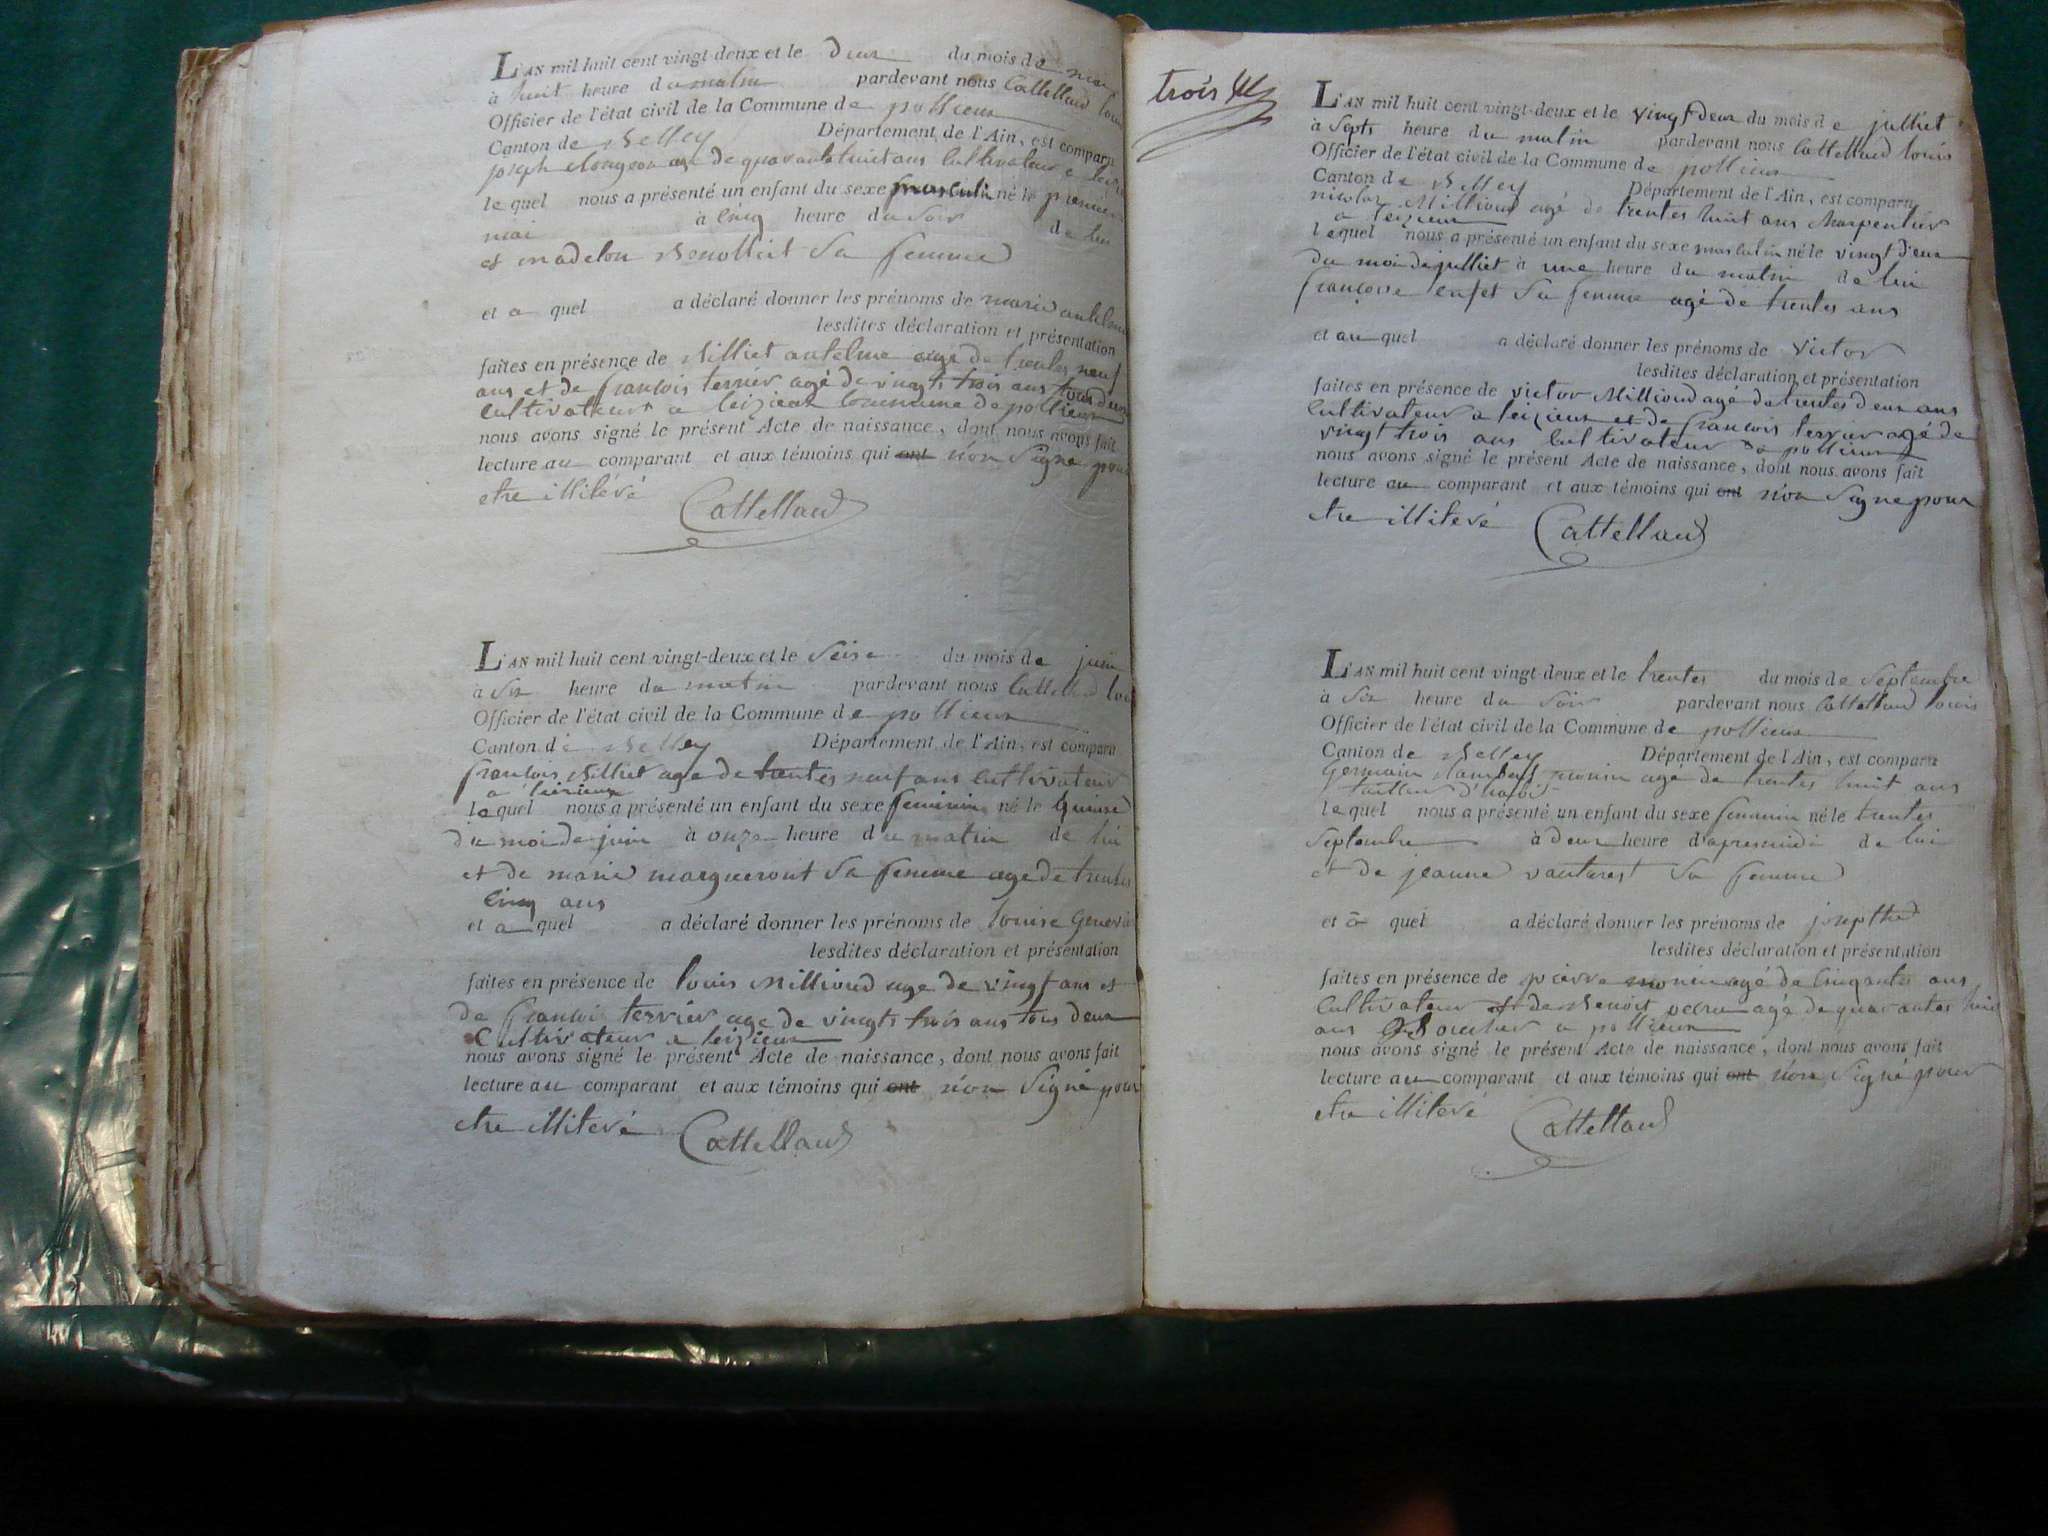 L'AN mil huit cent vingt-deux et le deux du mois de mai
à huit heure du matin pardevant nous Cattelland louis
Officier de l'état civil de la Commune de pollieux
Canton de Belley Département de l'Ain, est comparu
joseph age de quarante huit ans Cultivateur a
le quel nous a présenté un enfant du sexe masculin né le premier
mai à cinq heure du soir de lui
et madelon sa femme
et a quel a déclaré donner les prénoms de marie antelme
lesdites déclaration et présentation
faites en présence de Billiet antelme age de trentes neuf
ans et de françois terrier agé de vingts trois ans tous deux
Cultivateur a leizieux Commune de pollieux
nous avons signé le présent Acte de naissance, dont nous avons fait
lecture au comparant et aux témoins qui ont n'on Signe pour
etre illiteré Cattelland
L'AN mil huit cent vingt-deux et le Seise du mois de juin
à Six heure du matin pardevant nous Cattelland louis
Officier de l'état civil de la Commune de pollieux
Canton de Belley Département de l'Ain, est comparu
françois Billiet age de trentes neuf ans Cultivateur
a leizieux
le quel nous a présenté un enfant du sexe feminin né le quinse
du moi de juin à onze heure du matin de lui
et de marie margueront sa femme age de trentes
cinq ans
et a quel a déclaré donner les prénoms de louise
lesdites déclaration et présentation
faites en présence de louis Millioud age de vingt ans et
de françois terrier age de vingts trois ans tous deux
Cultivateur a leizieux
nous avons signé le présent Acte de naissance, dont nous avons fait
lecture au comparant et aux témoins qui ont n'on Signé pour
etre illiteré Cattelland
trois
L'AN mil huit cent vingt-deux et le vingt deux du mois de julliet
à Septs heure du matin pardevant nous Cattelland louis
Officier de l'état civil de la Commune de pollieux
Canton de Belley Département de l'Ain, est comparu
nicolas Millioud agé de trentes huit ans charpentier
a leizieux
le quel nous a présenté un enfant du sexe masculin né le vingt deux
du moi de julliet à une heure du matin de lui
françoise sa femme agé de trentes ans
et au quel a déclaré donner les prénoms de victor
lesdites déclaration et présentation
faites en présence de victor Millioud agé de trentes deux ans
Cultivateur a leizieux et de françois terrier agé de
vingt trois ans Cultivateur a pollieux
nous avons signé le présent Acte de naissance, dont nous avons fait
lecture au comparant et aux témoins qui ont n'on Signe pour
etre illiteré Cattelland
L'AN mil huit cent vingt-deux et le trentes du mois de Septembre
à Six heure du Soir pardevant nous Cattelland louis
Officier de l'état civil de la Commune de pollieux
Canton de Belley Département de l'Ain, est comparu
Germain monin age de trentes huit ans
tailleur d'habit
le quel nous a présenté un enfant du sexe feminin né le trentes
Septembre à deux heure d'apresmidi de lui
et de jeanne sa femme
et a quel a déclaré donner les prénoms de josepthe
lesdites déclaration et présentation
faites en présence de pierre monin agé de cinquantes ans
Cultivateur et de Benoit agé de quarantes huit
ans a pollieux
nous avons signé le présent Acte de naissance, dont nous avons fait
lecture au comparant et aux témoins qui ont n'on Signe pour
etre illiteré Cattelland